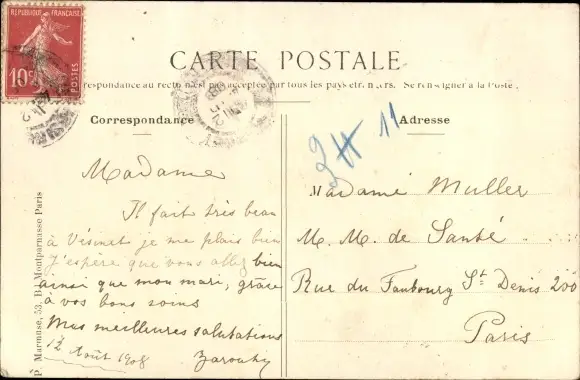 REPUBLIQUE FRANÇAISE
10c
POSTES
CARTE POSTALE
respondance au recto n'est pas acceptée par tous les pays étrangers. Se renseigner à la Poste.
Correspondance
Madame
Il fait très beau
à Vésinet je me plais bien
J'espère que vous allez bien
ainsi que mon mari, grâce
à vos bons soins
Mes meilleures salutations
12 Août 1908
P. Marmuse, 53, Bd Montparnasse Paris
Adresse
11
Madame Muller
M. M. de Santé
Rue du Faubourg St Denis 200
Paris